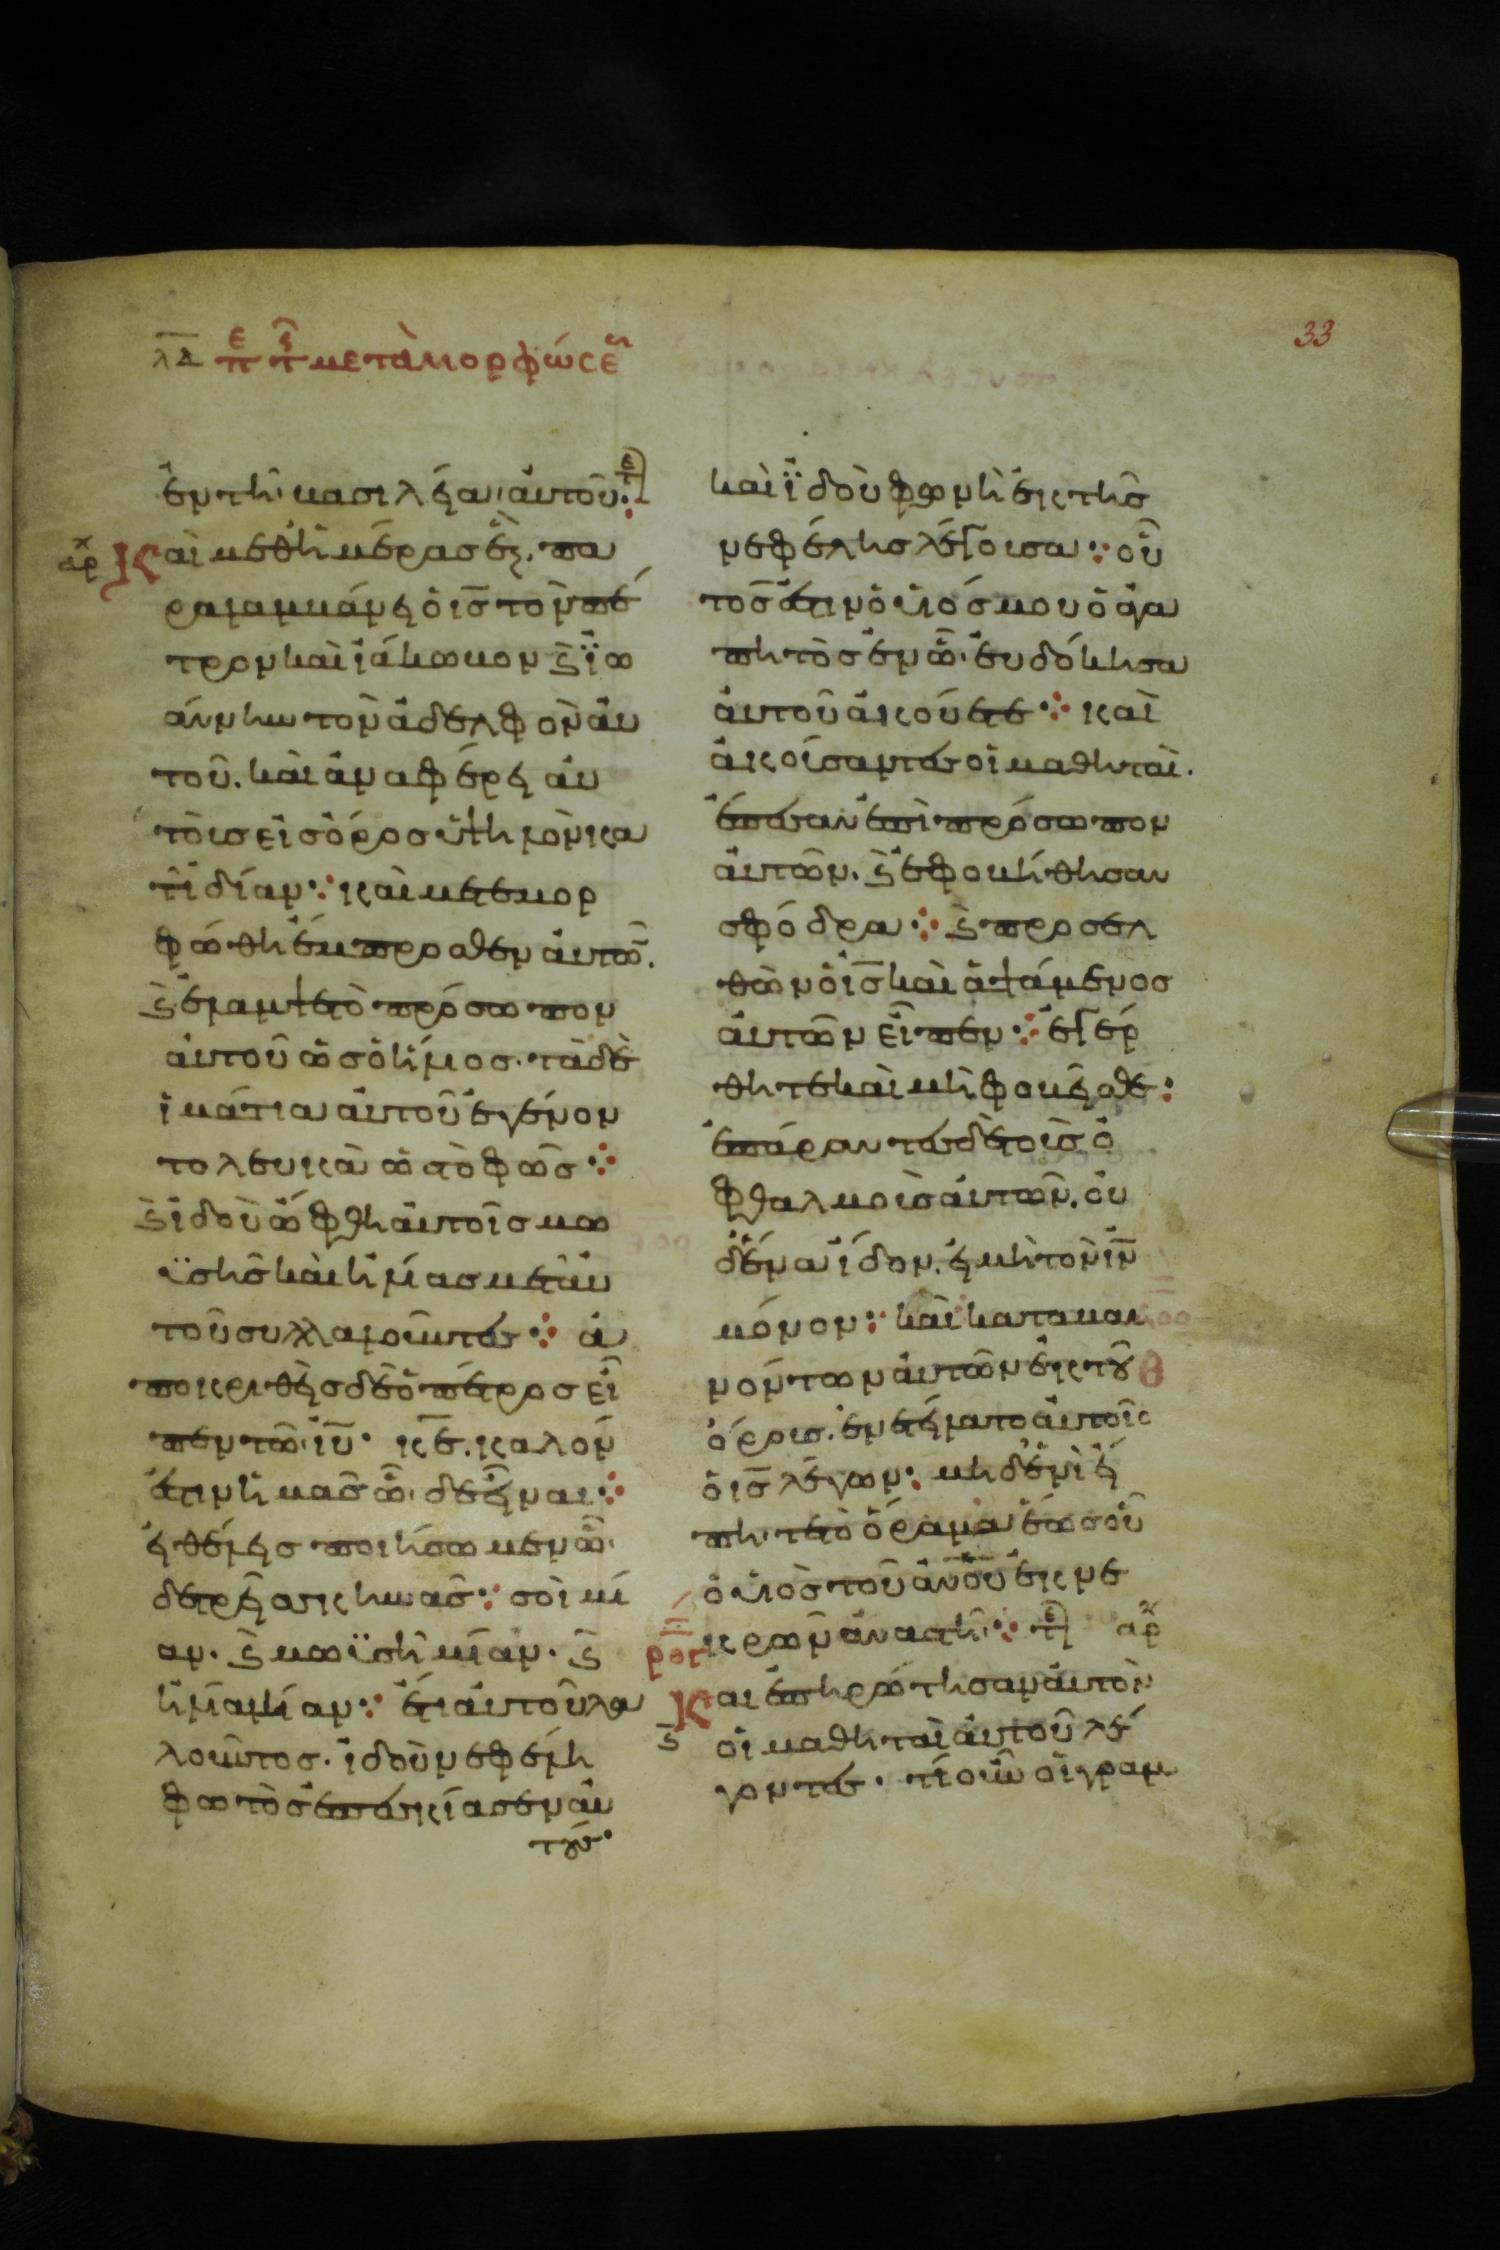 33
λδ πε τς μεταμορφώσε
ἐν τῆ βασιλεία αὐτοῦ· τε
αρχ Και μεθ ἡμέρας ἓξ, πα
ραλαμβάνει ὁ ις τὸν πέ
τρον καὶ ϊάκωβον ϗ ϊω
άννην τὸν ἀδελφὸν αὐ
τοῦ. καὶ ἀναφέρει αὐ
τοὺς εἰς ὄρος ὑψηλὸν κα
τ ιδίαν· καὶ μετεμορ
φώθη ἔμπροσθεν αὐτῶ.
ϗ ἔλαμψε τὸ πρόσωπον
αὐτοῦ ὡς ὁ ἥλιος. τὰ δὲ
ἱμάτια αὐτοῦ ἐγένον
το λευκὰ ὡς τὸ φῶς·
ϗ ἰδοὺ ὤφθη αὐτοῖς μω
ϋσῆς καὶ ἡλίας μετ αὐ
τοῦ συλλαλοῦντες· ἀ
ποκριθεὶς δὲ ὁ πέτρος εἶ
πεν τῶ ιυ· κε. καλόν
ἐστιν ἡμᾶς ὧδε εἶναι·
εἰ θέλεις ποιήσωμεν ὧ
δε τρεῖς σκηνάς· σοὶ μί
αν. ϗ μωϋσῆ μίαν. ϗ
ἡλία μίαν· ἔτι αὐτοῦ λα
λοῦντος. ἰδοὺ νεφέλη
φωτὸς ἐπεσκίασεν αὐ
τούς·
καὶ ϊδοὺ φωνὴ ἐκ τῆς
νεφέλης λέγουσα· οὗ
τος ἐστιν ὁ υἱός μου ὁ ἀγα
πητὸς ἐν ὧ εὐδόκησα
αὐτοῦ ἀκούετε· καὶ
ἀκούσαντες οἱ μαθηταὶ.
ἔπεσαν ἐπὶ πρόσωπον
αὐτῶν. ϗ ἐφοβήθησαν
σφόδρα· ϗ προσελ
θὼν ὁ ις καὶ ἁψάμενος
αὐτῶν εἶπεν· ἐγέρ
θητε καὶ μὴ φοβεῖσθε·
ἐπάραντες δὲ τοὺς ὀ
φθαλμοὺς αὐτῶν. οὐ
δένα ἴδον. εἰ μὴ τὸν ιν
μόνον· καὶ καταβαι
νόντων αὐτῶν ἐκ τοῦ
ὄρους. ἐνετείλατο αὐτοῖς
ὁ ις λέγων· μηδενὶ εἴ
πητε τὸ ὅραμα ἕως οὗ
ὁ υἱὸς τοῦ ανου ἐκ νε
κρῶν ἀναστῆ· τε αρχ
ρογ ς Και ἐπηρώτησαν αὐτὸν
οἱ μαθηταὶ αὐτοῦ λέ
γοντες· τί οὖν οἱ γραμ